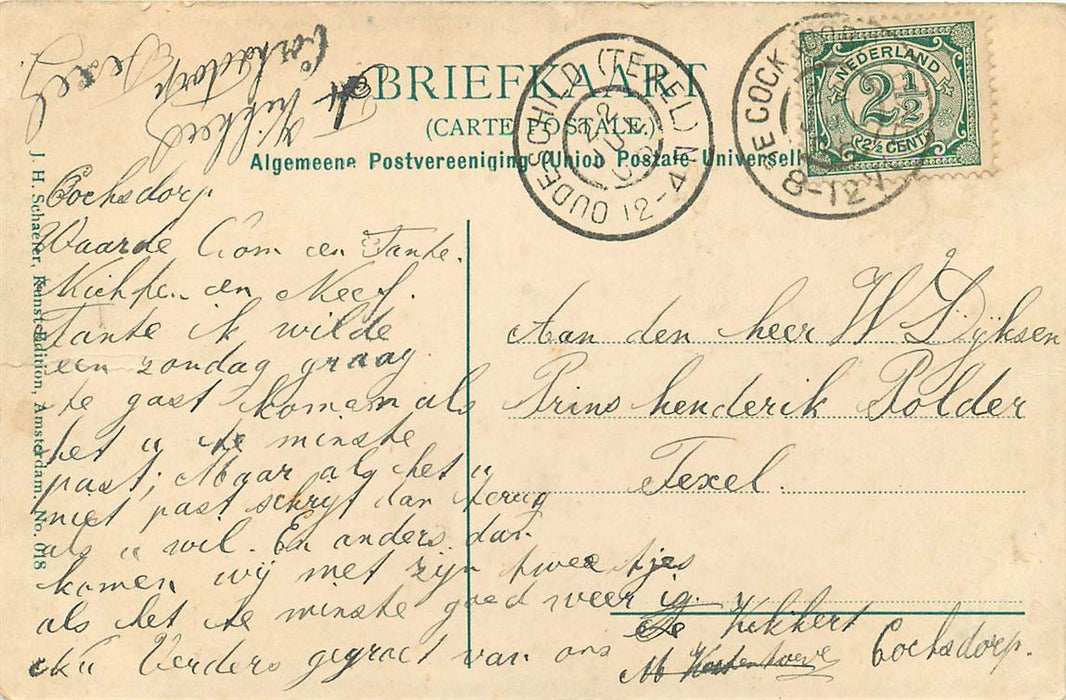 BRIEFKAART
(CARTE POSTALE.)
Algemeene Postvereeniging (Union Postale Universelle
NEDERLAND
2½
2½ CENT
OUDESCHILD (TEXEL)
22
12-4N
DE COCK
8-12V
J. H. Schaefer, Kunst-Edition, Amsterdam, No. 018
Kikkert
Cocksdorp
Texel
Cocksdorp
Waarde Oom en Tante.
Nichpen en Neef.
Tante ik wilde
een zondag graag
te gast komen als
het u te minste
past; Maar als het u
niet past schrijf dan terug
als u wil. En anders dan
komen wij met zijn twee tjes
als het te minste goed weer is.
Verders gegroet van ons
Kikkert
M Cocksdorp.
Aan den heer W Dijksen
Prins henderik Polder
Texel.